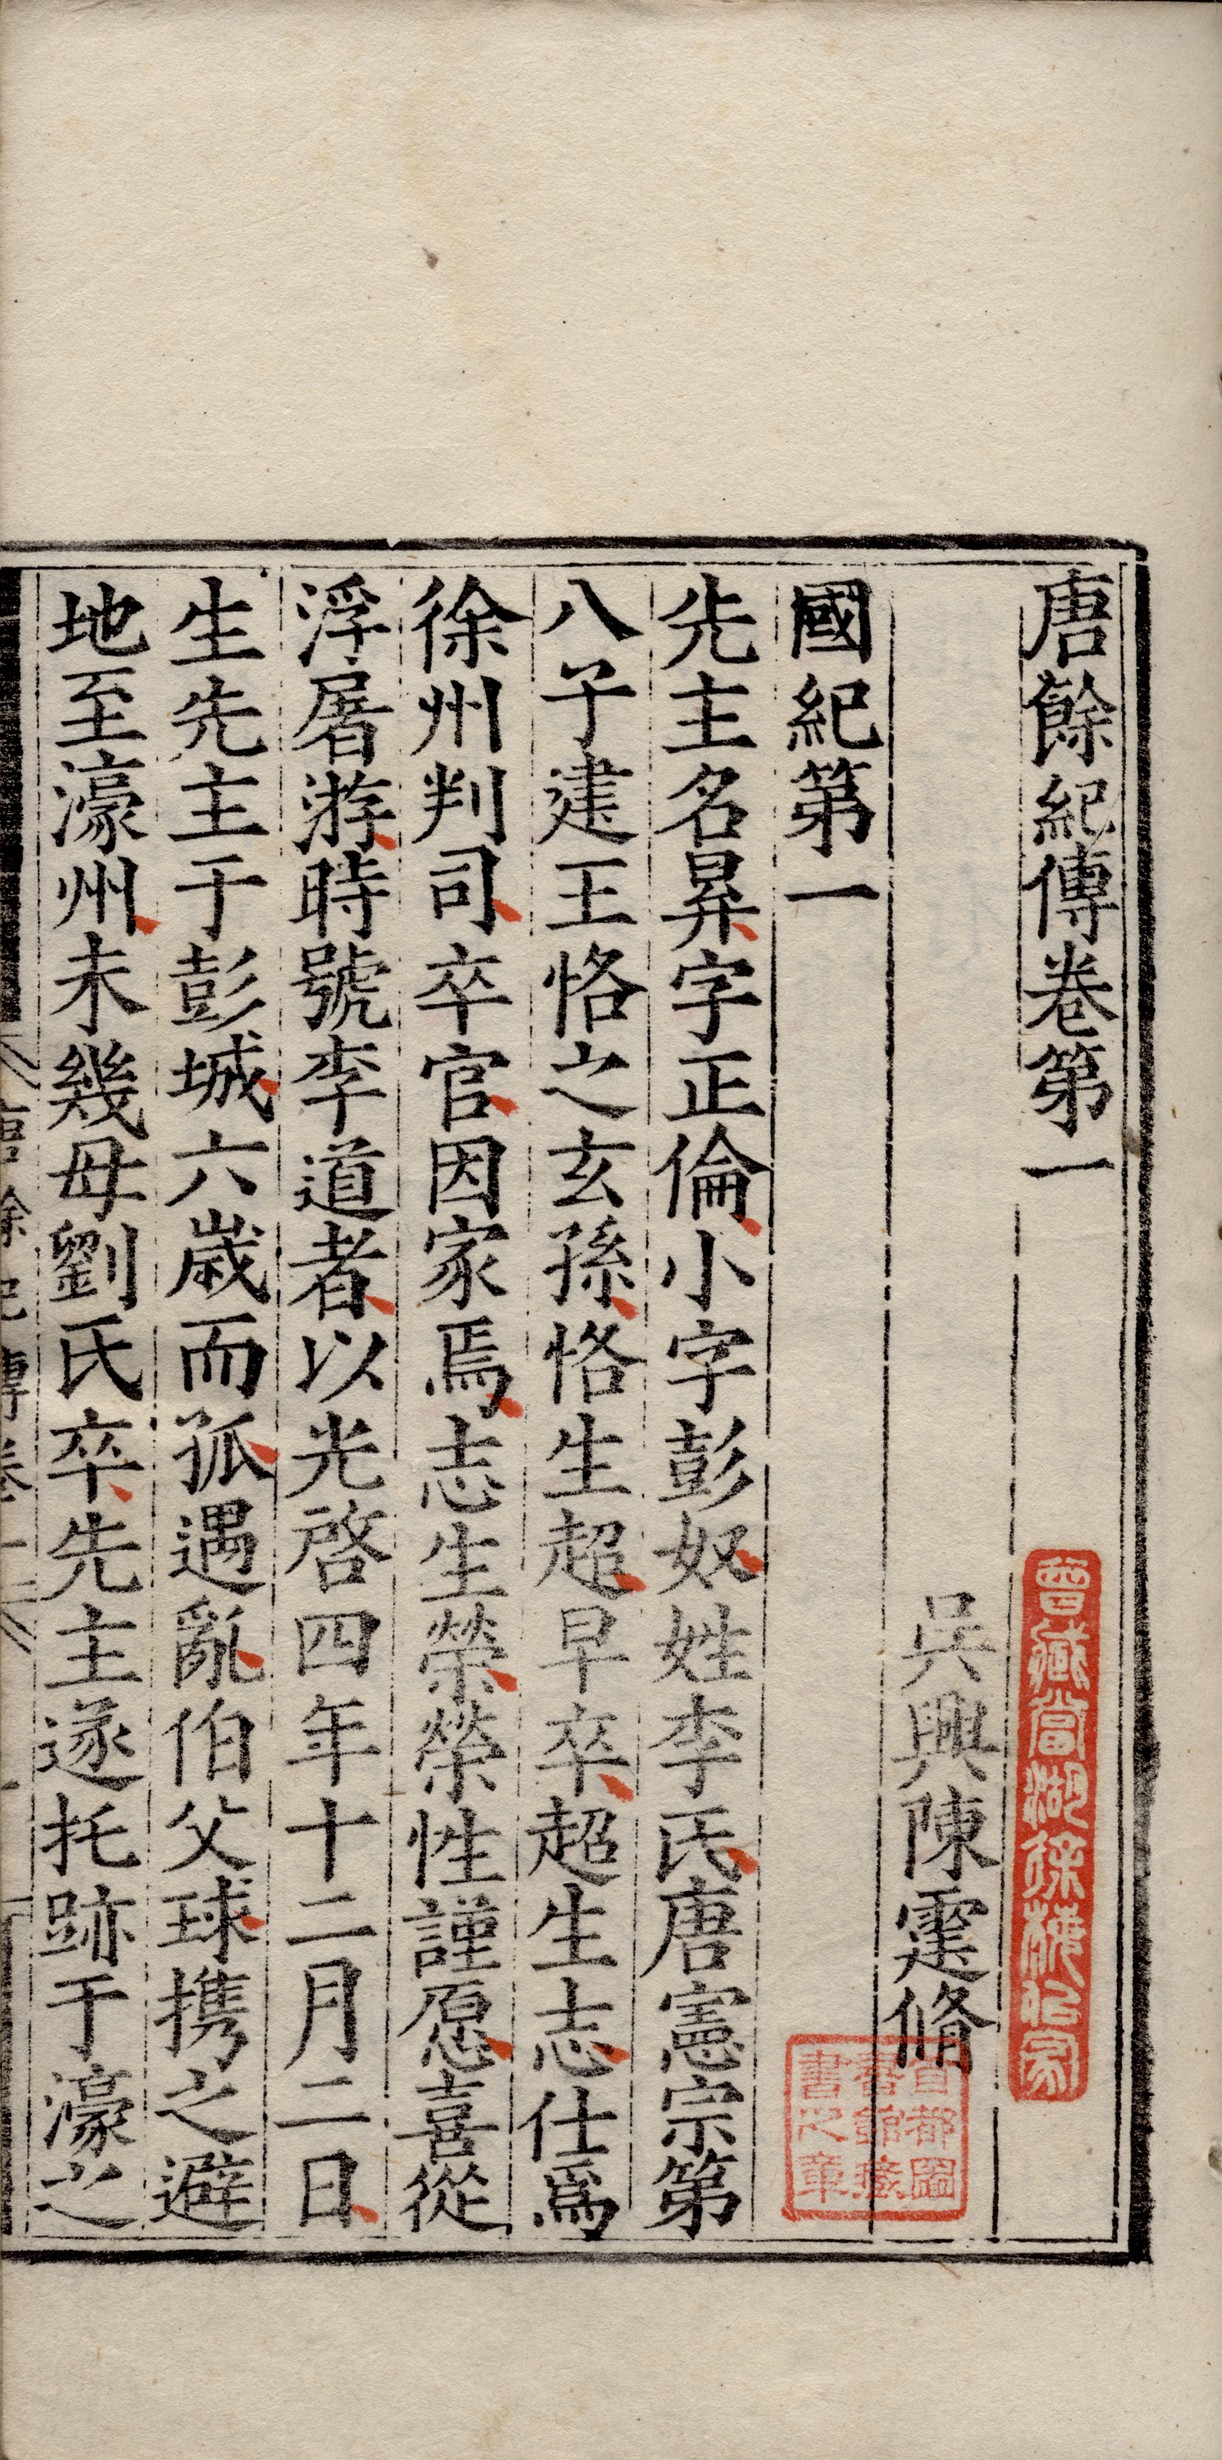 唐餘紀傳卷第一
吳興陳霆脩
國紀第一
先主名昪字正倫小字彭奴姓李氏唐憲宗第
八子建王恪之玄孫恪生超早卒超生志仕爲
徐州判司卒官因家焉志生榮榮性謹愿喜從
浮屠游時號李道者以光啓四年十二月二日
生先主于彭城六歲而孤遇亂伯父球携之避
地至濠州未幾母劉氏卒先主遂托跡于濠之
唐餘紀傳卷一
曾藏當湖徐梅似家
首都圖書館藏書之章